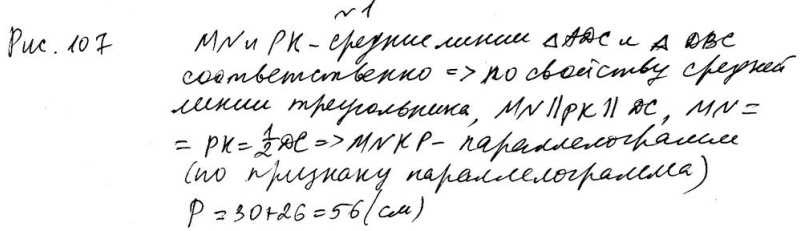 №1
Рис. 107 MN и PK – средние линии △ ADC и △ DBC
соответственно => по свойству средней
линии треугольника, MN || PK || DC, MN =
= PK = 1/2 DC => MNKP – параллелограмм
(по признаку параллелограмма)
P = 30+26 = 56 (см)